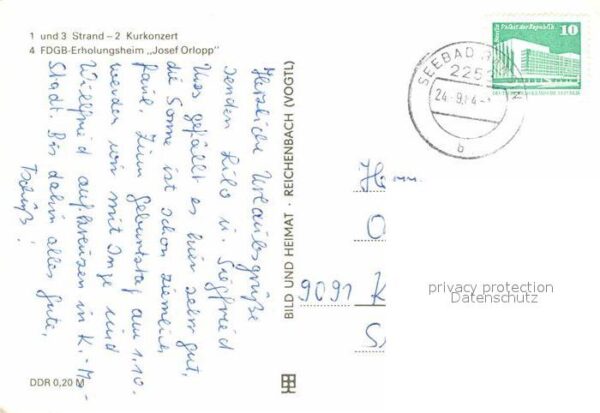 1 und 3 Strand – 2 Kurkonzert
4 FDGB-Erholungsheim „Josef Orlopp"
Herzliche Urlaubsgrüße
senden Lilo u. Siegfried
Uns gefällt es hier sehr gut,
die Sonne ist schon ziemlich
faul. Zum Geburtstag am 1.10.
werden wir mit Inge und
Willfried aufkreuzen in K.-M.-
Stadt. Bis dahin alles Gute,
Tschüß!
DDR 0,20 M
BILD UND HEIMAT · REICHENBACH (VOGTL)
Palast der Republik
10
SEEBAD
225
24.-9.
b
9091 K
privacy protection
Datenschutz